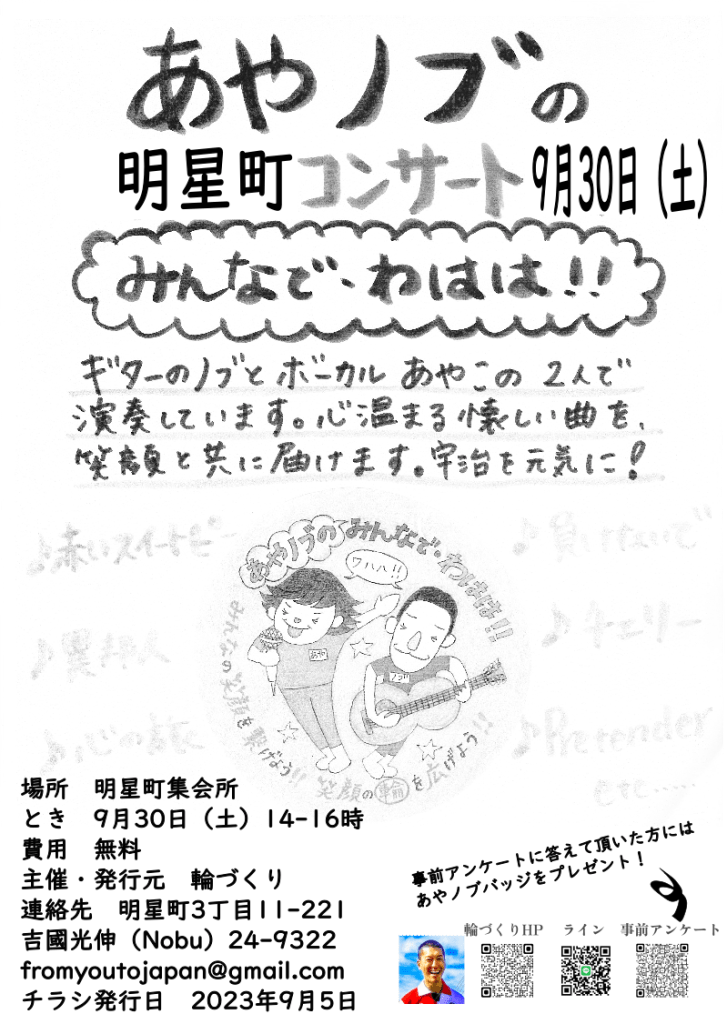 あやノブの
明星町コンサート 9月30日（土）
みんなで、わはは!!
ギターのノブとボーカル あやこの 2人で
演奏しています。心温まる懐しい曲を、
笑顔と共に届けます。宇治を元気に!
♪赤いスイートピー
♪負けないで
♪異邦人
♪チェリー
♪心の旅
♪Pretender
etc.....
あやノブの みんなで、わはは!!
ワハハ!!
あや
ノブ
みんなの笑顔を繋げよう!! 笑顔の輪を広げよう!!
場所　明星町集会所
とき　9月30日（土）14-16時
費用　無料
主催・発行元　輪づくり
連絡先　明星町3丁目11-221
吉國光伸（Nobu）24-9322
fromyoutojapan@gmail.com
チラシ発行日　2023年9月5日
事前アンケートに答えて頂いた方には
あやノブバッジをプレゼント！
輪づくりHP　ライン　事前アンケート